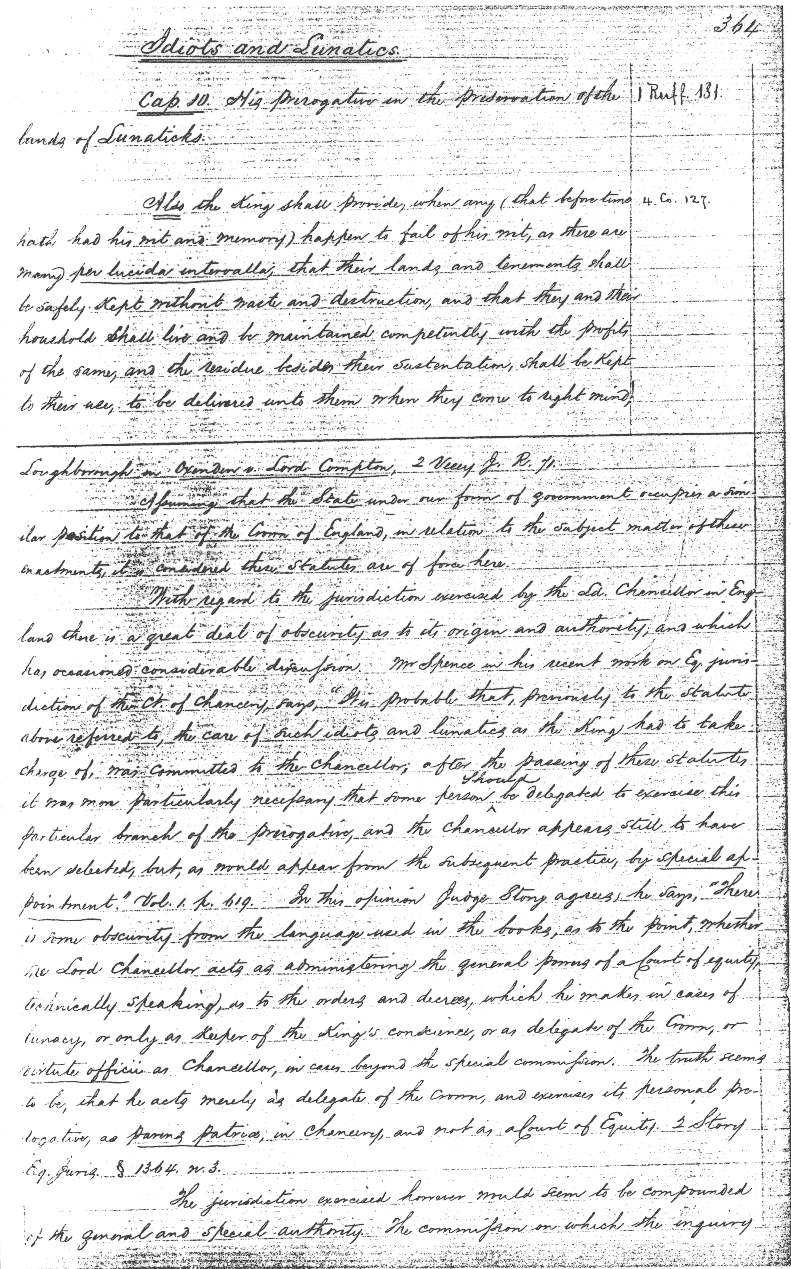 364
Idiots and Lunatics.
Cap. 10. His prerogative in the preservation of the
1 Ruff. 181.
lands of Lunaticks.
Also the King shall provide, when any (that before time
4 Co. 127.
hath had his wit and memory) happen to fail of his wit, as there are
many per lucida intervalla, that their lands and tenements shall
be safely kept without waste and destruction, and that they and their
household shall live and be maintained competently with the profits
of the same, and the residue besides their sustentation, shall be kept
to their use, to be delivered unto them when they come to right mind;
Loughborough in Oxenden v. Lord Compton, 2 Vesey J. R. 71.
Assuming that the State under our form of government occupies a sim-
ilar position to that of the Crown of England, in relation to the subject matter of these
enactments, it is considered these statutes are of force here.
With regard to the jurisdiction exercised by the Ld. Chancellor in Eng-
land there is a great deal of obscurity as to its origin and authority, and which
has occasioned considerable discussion. Mr Spence in his recent work on Eq. juris-
diction of the Ct. of Chancery, says, "It is probable that, previously to the statute
above referred to, the care of such idiots and lunatics as the King had to take
charge of, was committed to the Chancellor; after the passing of these statutes
it was more particularly necessary that some person should be delegated to exercise this
particular branch of the prerogative, and the Chancellor appears still to have
been selected, but, as would appear from the subsequent practice, by special ap-
pointment." Vol. 1. p. 619. In this opinion Judge Story agrees; he says, "There
is some obscurity from the language used in the books, as to the point, whether
the Lord Chancellor acts as administering the general powers of a Court of equity,
technically speaking, as to the orders and decrees, which he makes in cases of
lunacy, or only as keeper of the King's conscience, or as delegate of the Crown, or
virtute officii as Chancellor, in cases beyond the special commission. The truth seems
to be, that he acts merely as delegate of the Crown, and exercises its personal pre-
rogative, as parens patriae, in Chancery, and not as a Court of Equity. 2 Story
Eq. Juris. § 1364. n. 3.
The jurisdiction exercised however would seem to be compounded
of the general and special authority. The commission on which the inquiry